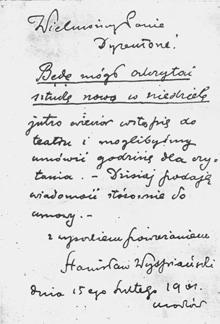 Wielmożny Panie
Dyrektorze!
Będę mógł odczytać
sztukę nową w niedzielę
jutro wieczór wstąpię do
teatru i moglibyśmy
umówić godzinę dla czy-
tania. – Dzisiaj podaję
wiadomość stosownie do
umowy. –
z wysokiem poważaniem
Stanisław Wyspiański
dnia 15go lutego 1901.
Kraków